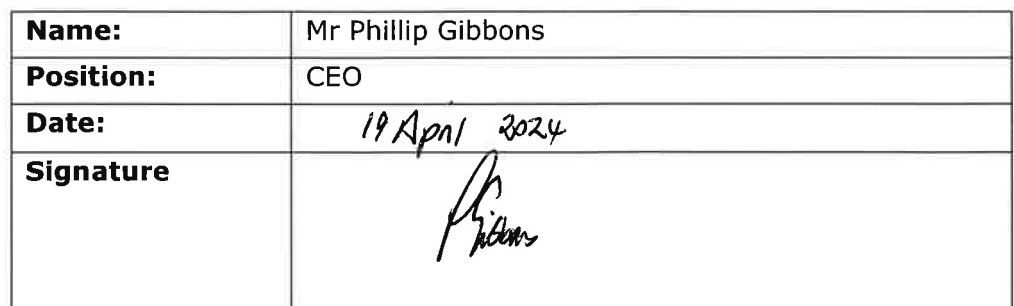 Name: Mr Phillip Gibbons
Position: CEO
Date: 19 April 2024
Signature PGibbons